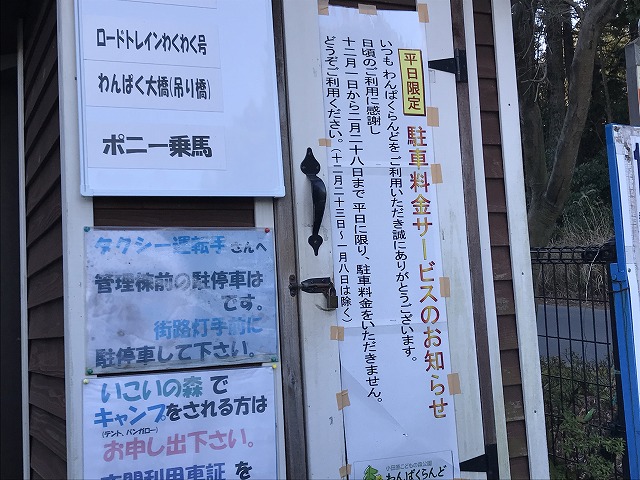 ロードトレインわくわく号
わんぱく大橋(吊り橋)
ポニー乗馬
タクシー運転手さんへ
管理棟前の駐停車は
です。
街路灯手前に
駐停車して下さい。
いこいの森で
キャンプをされる方は
(テント、バンガロー)
お申し出下さい。
夜間利用車証を
平日限定
駐車料金サービスのお知らせ
いつも わんぱくらんどを ご利用いただき誠にありがとうございます。
日頃のご利用に感謝し
十二月一日から二月二十八日まで 平日に限り、駐車料金をいただきません。
どうぞご利用ください。(十二月二十三日～一月八日は除く)
小田原こどもの森公園
わんぱくらんど